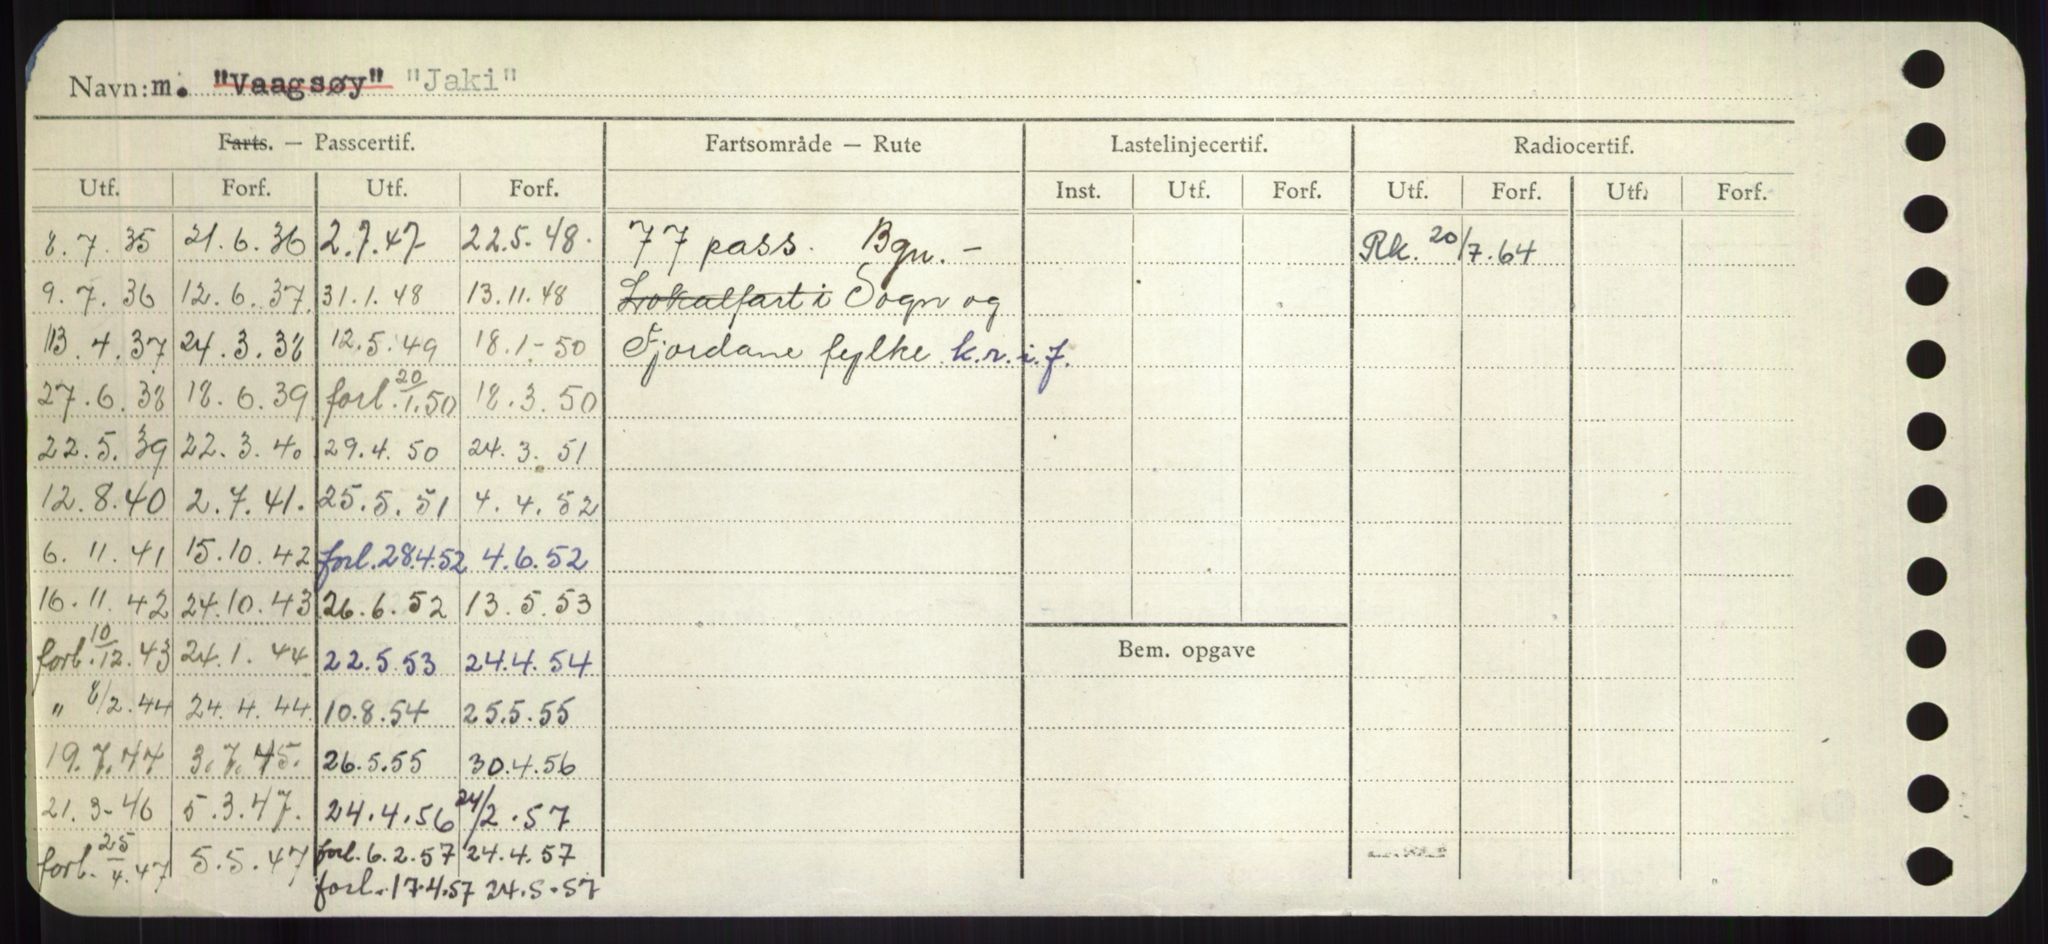 Navn: m. "Vaagsøy" "Jaki"
Farts. — Passcertif. Fartsområde — Rute Lastelinjecertif. Radiocertif.
Utf. Forf. Utf. Forf. Inst. Utf. Forf. Utf. Forf. Utf. Forf.
8.7.35 21.6.36 2.7.47 22.5.48. 77 pass. Bgn. - Rk. 20/7.64
9.7.36 12.6.37. 31.1.48 13.11.48 Lokalfart i Sogn og
13.4.37 24.3.38 12.5.49 18.1-50 Fjordane fylke k.r.i.f.
27.6.38 18.6.39 forl. 20/1.50 18.3.50
22.5.39 22.3.40 29.4.50 24.3.51
12.8.40 2.7.41. 25.5.51 4.4.52
6.11.41 15.10.42 forl. 28.4.52 4.6.52
16.11.42 24.10.43 26.6.52 13.5.53
forl. 10/12.43 24.1.44 22.5.53 24.4.54
Bem. opgave
" 8/2.44 24.4.44 10.8.54 25.5.55
19.7.44 3.7.45. 26.5.55 30.4.56
21.3-46 5.3.47. 24.4.56 24/2.57
forl. 25/4.47 5.5.47 forl. 6.2.57 24.4.57
forl. 17.4.57 24.5.57